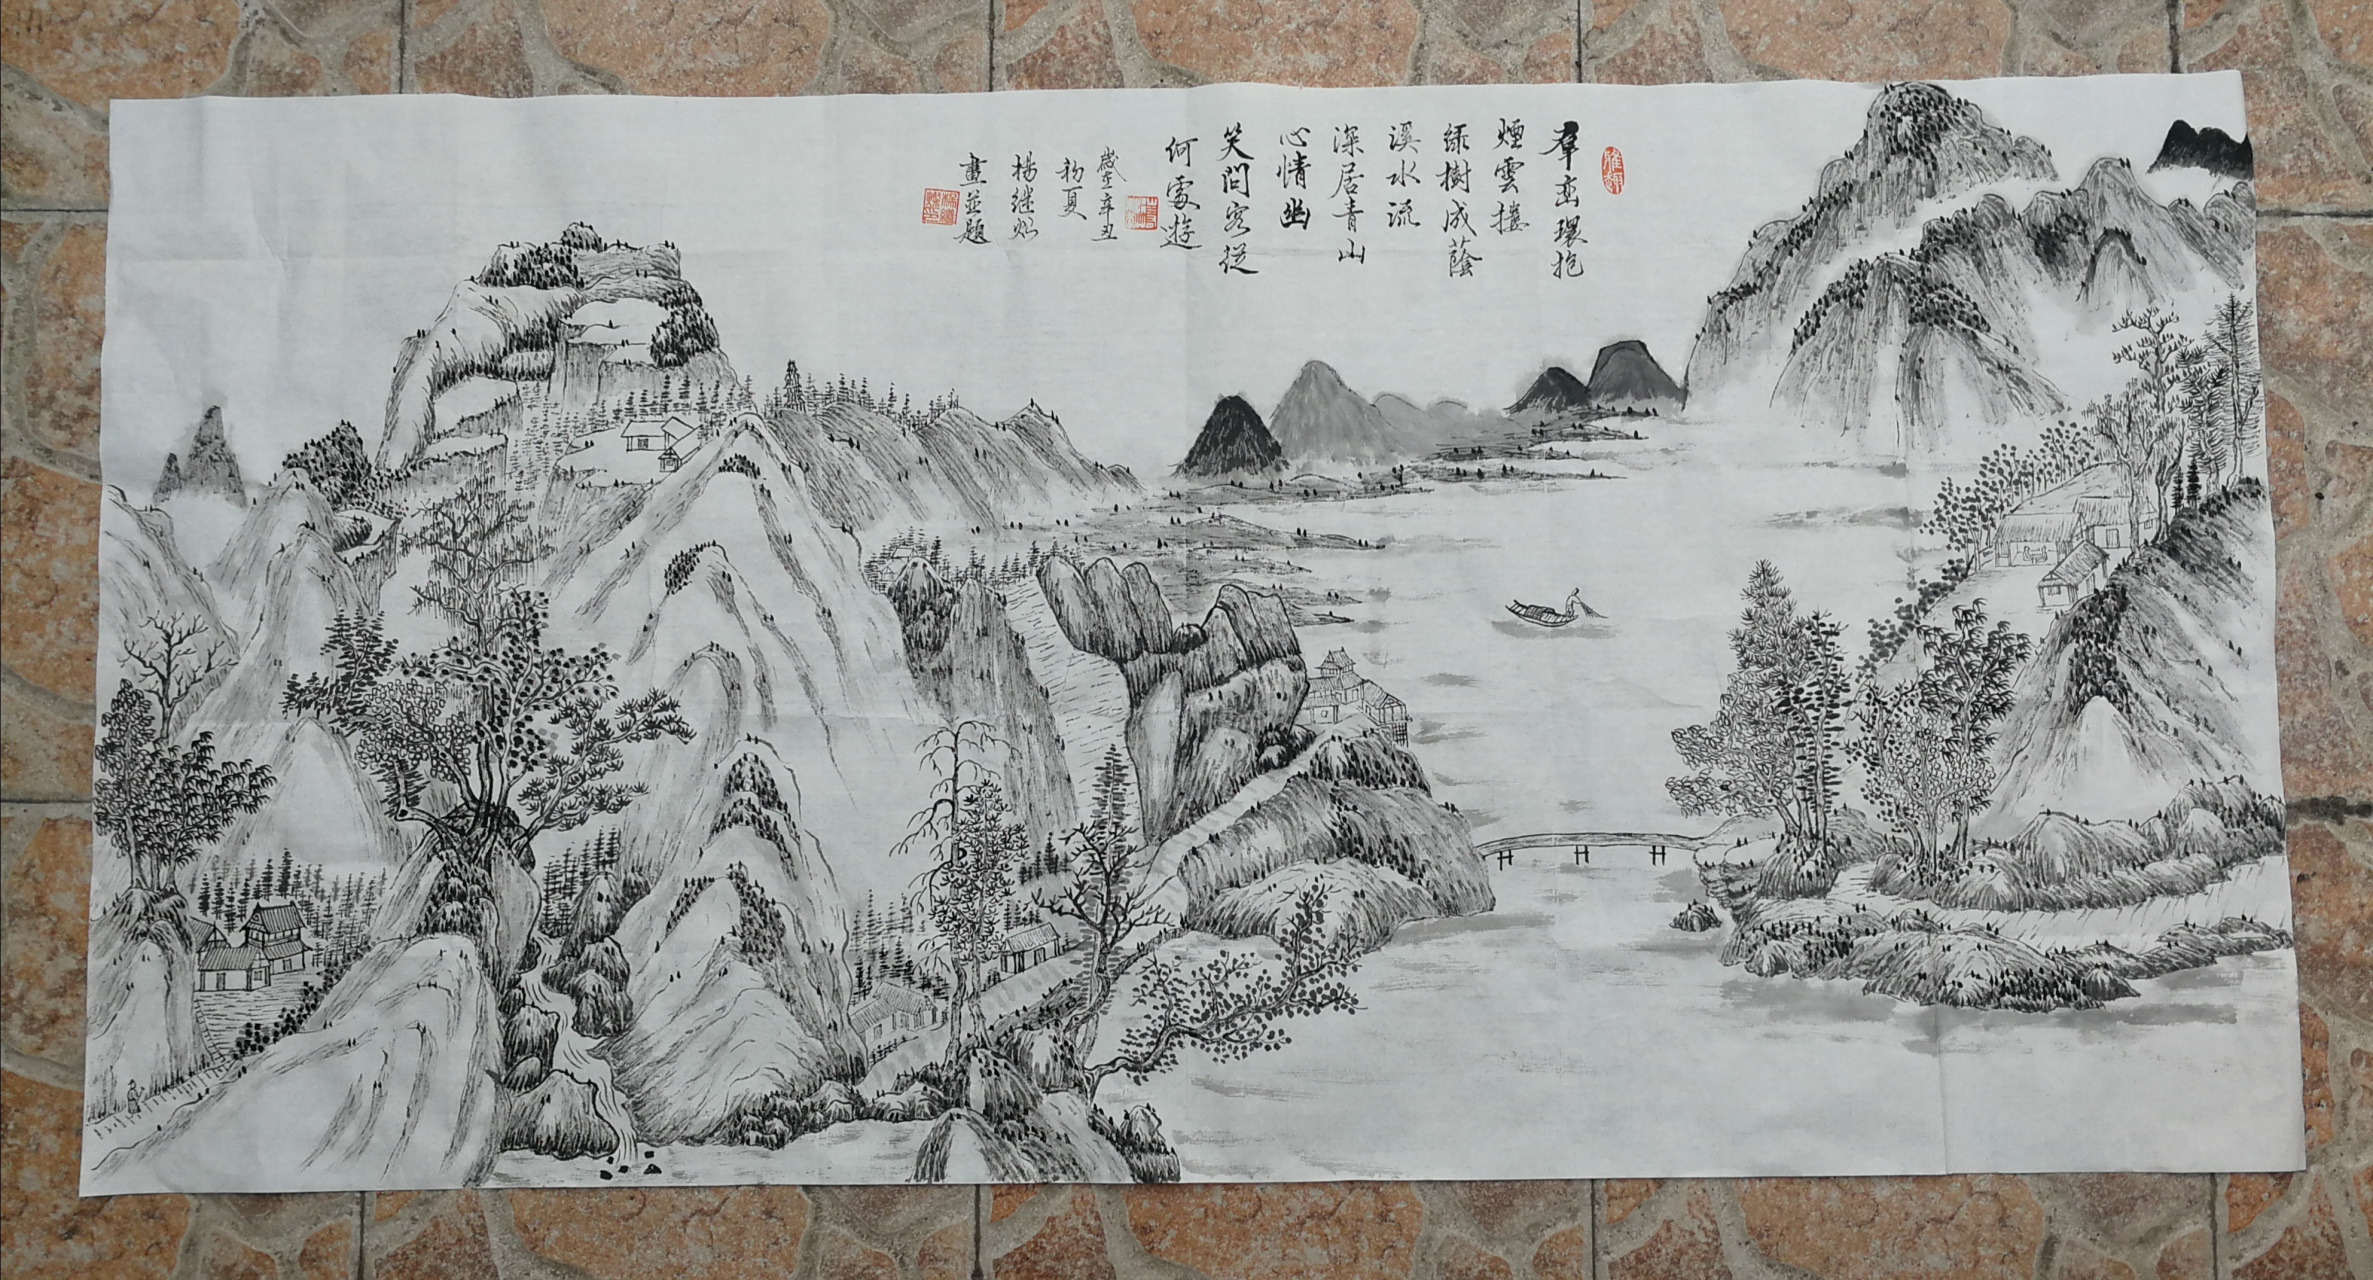 羣峦環抱
煙雲摟
綠樹成蔭
溪水流
深居青山
心情幽
笑問客從
何處遊
歲在辛丑
初夏
楊继灿
畫並題